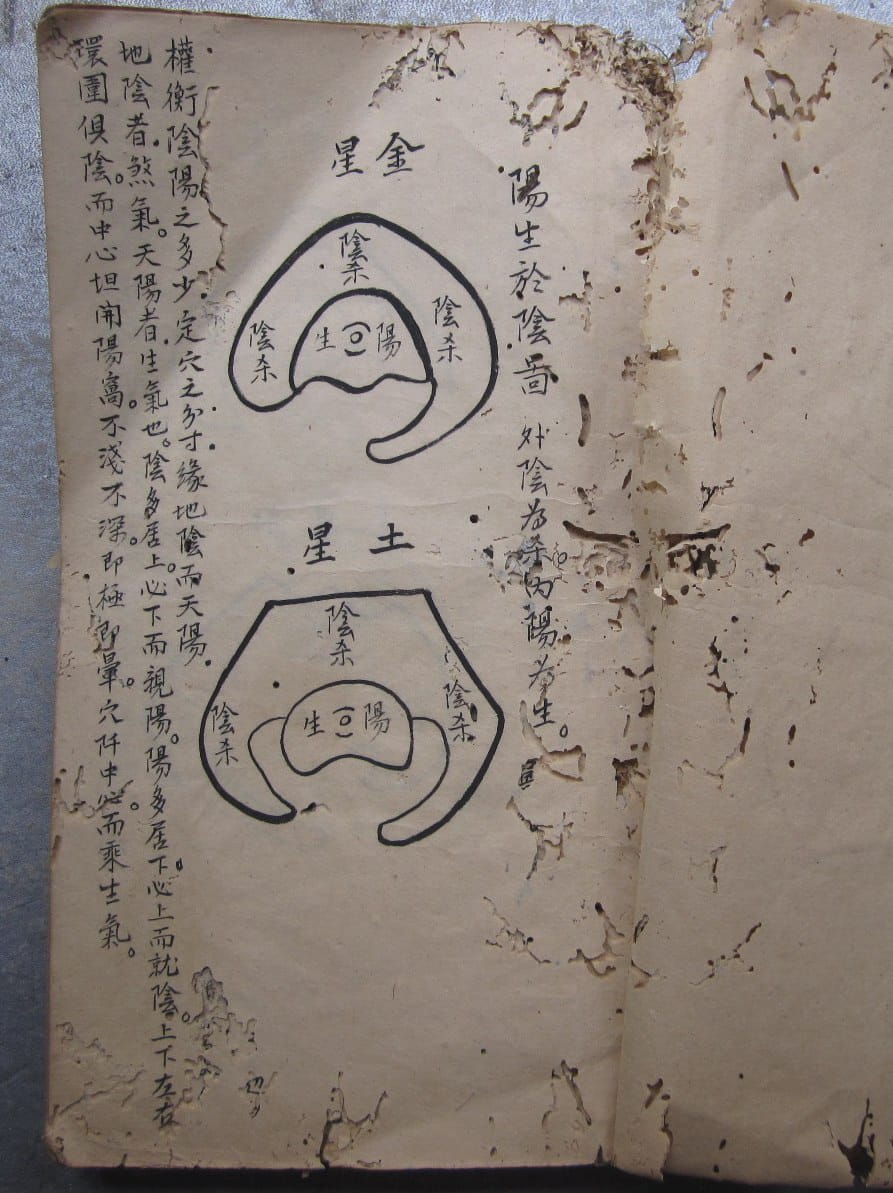 陽生於陰啚 外陰為杀。内陽為生。
金星
陰杀
陰杀
陰杀
陽生
土星
陰杀
陰杀
陰杀
陽生
權衡陰陽之多少.定穴之分寸.緣地陰而天陽.
地陰者.煞氣。天陽者.生氣也。陰多居上.必下而親陽。陽多居下.必上而就陰。上下左右
環圍俱陰。而中心坦開陽窩。不淺不深。即極即暈。穴阡中心。而乘生氣。